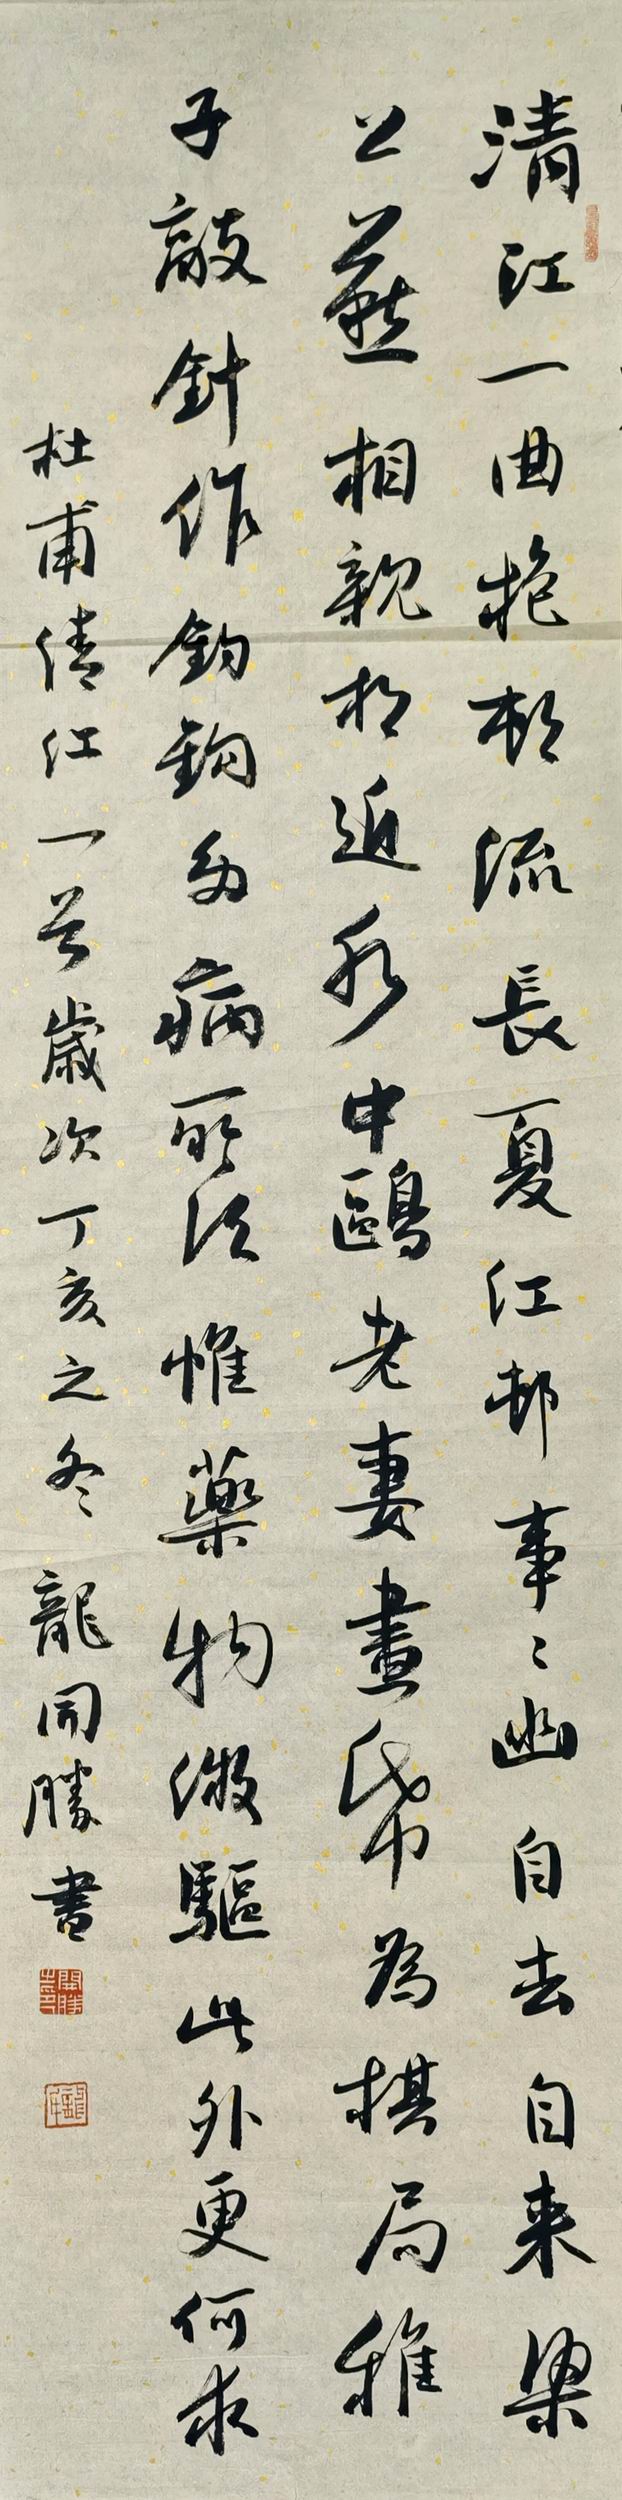 清江一曲抱村流長夏江邨事〻幽自去自来梁
上燕相親相近水中鷗老妻畫紙為棋局稚
子敲針作釣鉤多病所須惟藥物微驅此外更何求
杜甫清江一首歲次丁亥之冬龍開勝書